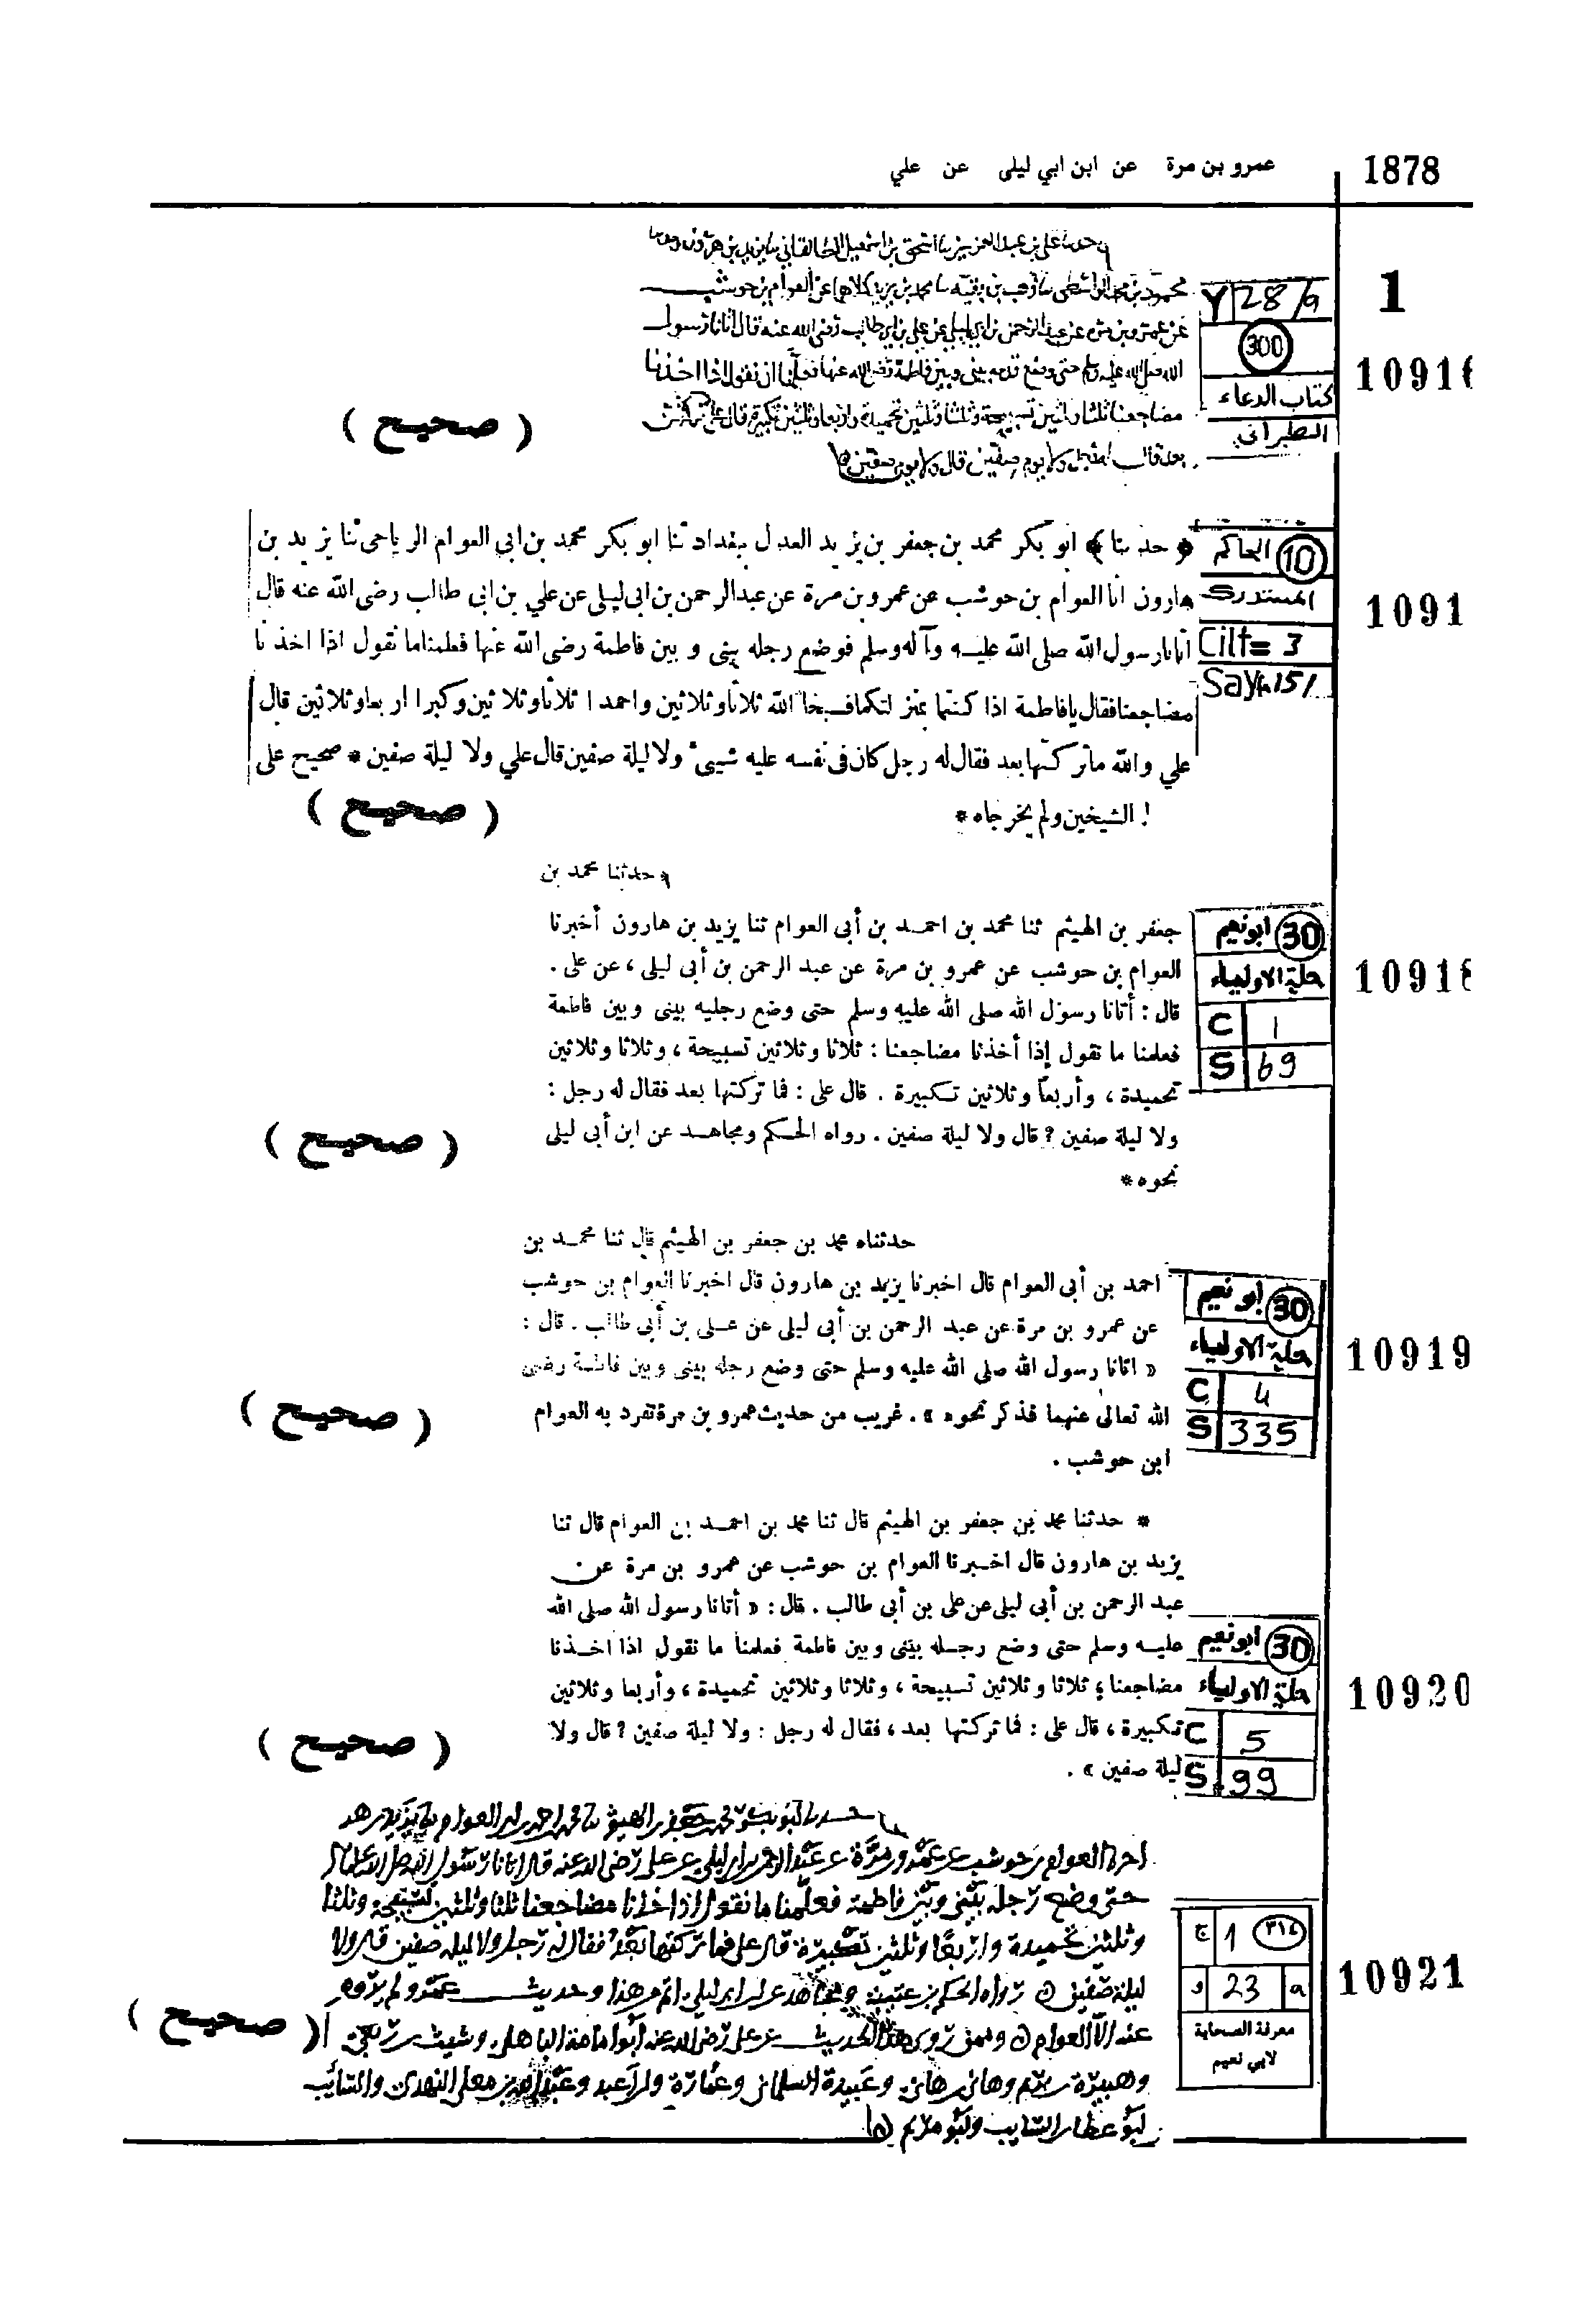 1878
عمرو بن مرة عن ابن ابي ليلى عن علي
1
حدثنا علي بن عبد العزيز نا اسحق بن اسمعيل الطالقاني نا يزيد بن هرون وحدثنا
محمود بن محمد الواسطي نا وهب بن بقية نا محمد بن يزيد كلاهما عن العوام بن حوشب
عن عمرو بن مرة عن عبد الرحمن بن ابي ليلى عن علي بن ابي طالب رضي الله عنه قال اتانا رسول
الله صلى الله عليه وسلم حتى وضع قدمه بيني وبين فاطمة رضي الله عنها فعلمنا ان نقول اذا اخذنا
مضاجعنا ثلثا وثلثين تسبيحة وثلثا وثلثين تحميدة واربعا وثلثين تكبيرة قال علي تركتهن
بعد قالت ولا يوم صفين قال ولا يوم صفين
Y 28/a
300
كتاب الدعاء
الطبراني
1091
( صحيح )
﴿ حدثنا ﴾ ابو بكر محمد بن جعفر بن يزيد العدل ببغداد ثنا ابو بكر محمد بن ابي العوام الرياحى ثنا يزيد بن
هارون انا العوام بن حوشب عن عمرو بن مرة عن عبدالرحمن بن ابى ليلى عن علي بن ابى طالب رضى الله عنه قال
اتانا رسول الله صلى الله عليه وآله وسلم فوضع رجله بينى و بين فاطمة رضى الله عنها فعلمنا ما نقول اذا اخذنا
مضاجعنا فقال يا فاطمة اذا كنتما بمنزلتكما فسبحا الله ثلاثا وثلاثين واحمدا ثلاثا وثلاثين وكبرا اربعا وثلاثين قال
علي والله ما تركتها بعد فقال له رجل كان فى نفسه عليه شيئ ولا ليلة صفين قال علي ولا ليلة صفين * صحيح على
الشيخين ولم يخرجاه *
10 الحاكم
المستدرك
Cilt= 3
Sayf.151
1091
( صحيح )
* حدثنا محمد بن
جعفر بن الهيثم ثنا محمد بن احمد بن أبى العوام ثنا يزيد بن هارون أخبرنا
العوام بن حوشب عن عمرو بن مرة عن عبد الرحمن بن أبى ليلى ، عن على .
قال : أتانا رسول الله صلى الله عليه وسلم حتى وضع رجليه بينى وبين فاطمة
فعلمنا ما نقول إذا أخذنا مضاجعنا : ثلاثا وثلاثين تسبيحة ، وثلاثا وثلاثين
تحميدة ، وأربعاً وثلاثين تكبيرة . قال على : فما تركتها بعد فقال له رجل :
ولا ليلة صفين ? قال ولا ليلة صفين . رواه الحكم ومجاهد عن ابن أبى ليلى
نحوه *
30 ابونعيم
حلية الاولياء
C 1
S 69
1091
( صحيح )
حدثناه محمد بن جعفر بن الهيثم قال ثنا محمد بن
احمد بن أبى العوام قال اخبرنا يزيد بن هارون قال اخبرنا العوام بن حوشب
عن عمرو بن مرة عن عبد الرحمن بن أبى ليلى عن على بن أبى طالب . قال :
« اتانا رسول الله صلى الله عليه وسلم حتى وضع رجله بينى وبين فاطمة رضى
الله تعالى عنهما فذكر نحوه » . غريب من حديث عمرو بن مرة تفرد به العوام
ابن حوشب .
30 ابو نعيم
حلية الاولياء
C 4
S 335
10919
( صحيح )
* حدثنا محمد بن جعفر بن الهيثم قال ثنا محمد بن احمد بن العوام قال ثنا
يزيد بن هارون قال اخبرنا العوام بن حوشب عن عمرو بن مرة عن
عبد الرحمن بن أبى ليلى عن على بن أبى طالب . قال : « أتانا رسول الله صلى الله
عليه وسلم حتى وضع رجله بينى وبين فاطمة فعلمنا ما نقول اذا اخذنا
مضاجعنا ؛ ثلاثا وثلاثين تسبيحة ، وثلاثا وثلاثين تحميدة ، وأربعا وثلاثين
تكبيرة ، قال على : فما تركتها بعد ، فقال له رجل : ولا ليلة صفين ? قال ولا
ليلة صفين » .
30 ابونعيم
حلية الاولياء
C 5
S 99
10920
( صحيح )
حدثنا ابو بكر محمد بن جعفر بن الهيثم نا محمد بن احمد بن ابي العوام نا يزيد بن هرون
اخبرنا العوام بن حوشب عن عمرو بن مرة عن عبد الرحمن بن ابي ليلى عن علي رضي الله عنه قال اتانا رسول الله صلى الله عليه وسلم
حتى وضع رجله بيني وبين فاطمة فعلمنا ما نقول اذا اخذنا مضاجعنا ثلثا وثلثين تسبيحة وثلثا
وثلثين تحميدة واربعا وثلثين تكبيرة قال علي فما تركتها بعد فقال له رجل ولا ليلة صفين قال ولا
ليلة صفين رواه الحكم بن عتيبة ومجاهد عن ابن ابي ليلى اتم من هذا وحديث عمرو لم يروه
عنه الا العوام وممن روى هذا الحديث عن علي رضي الله عنه ابو امامة الباهلي وشبث بن ربعي
وهبيرة بن يريم وهانئ بن هانئ وعبيدة السلماني وعمارة بن عبد وعبد الله بن معلى النهدي والسائب
ابو عطا بن السائب وابو مريم
ج 1 ٣١٤
و 23 a
معرفة الصحابة
لابي نعيم
10921
( صحيح )